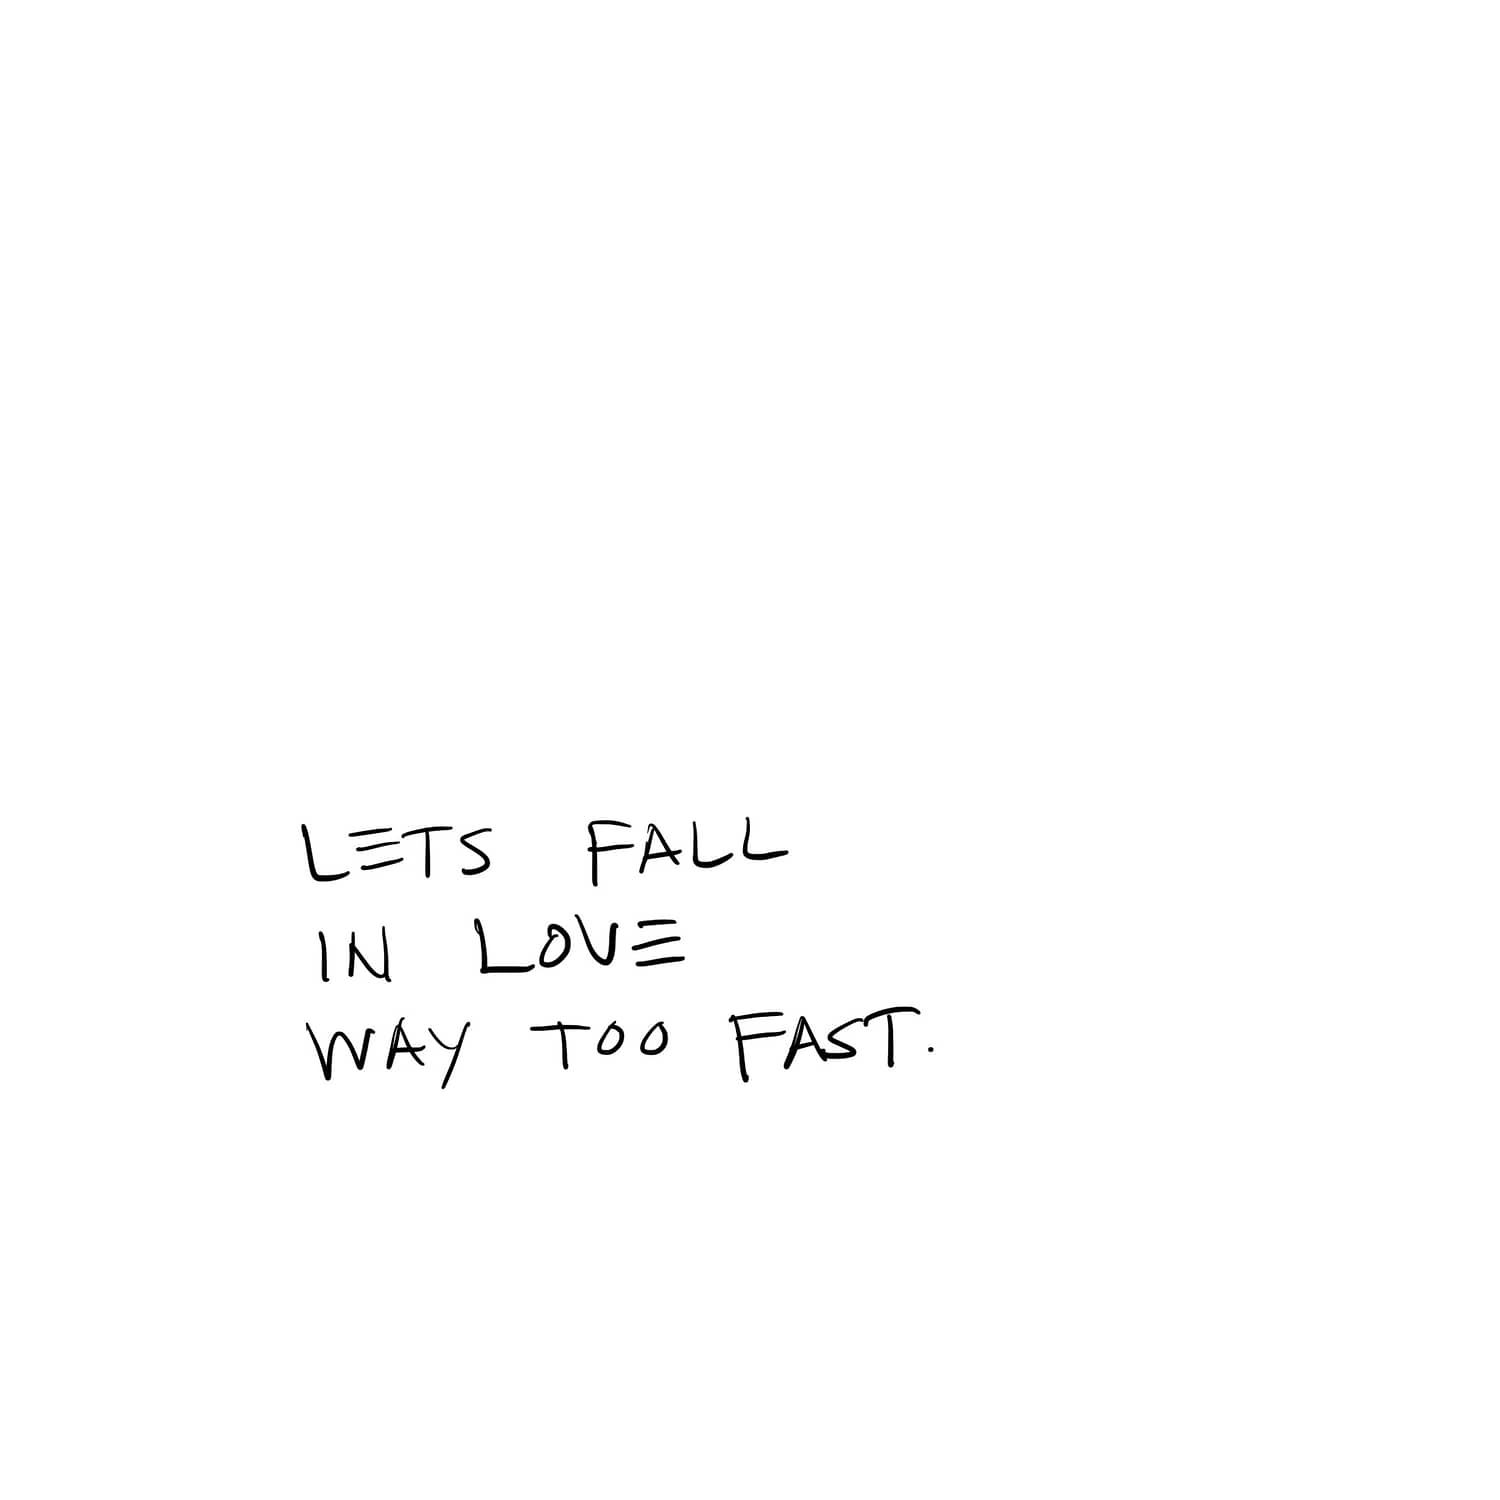 LETS FALL
IN LOVE
WAY TOO FAST.